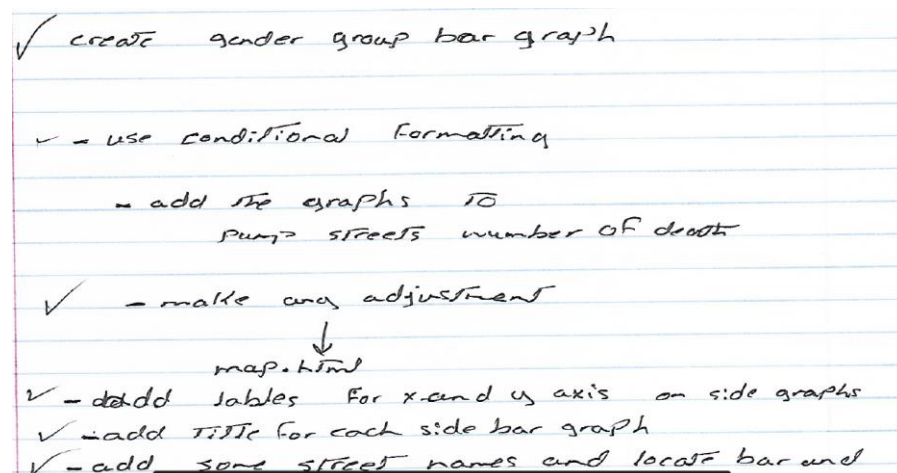 ✓ create gender group bar graph
✓ - use conditional formatting
- add the graphs to
pump streets number of death
✓ - make any adjustment
↓
map.html
✓ - add lables for x-and y axis on side graphs
✓ - add title for each side bar graph
✓ - add some street names and locate bar and